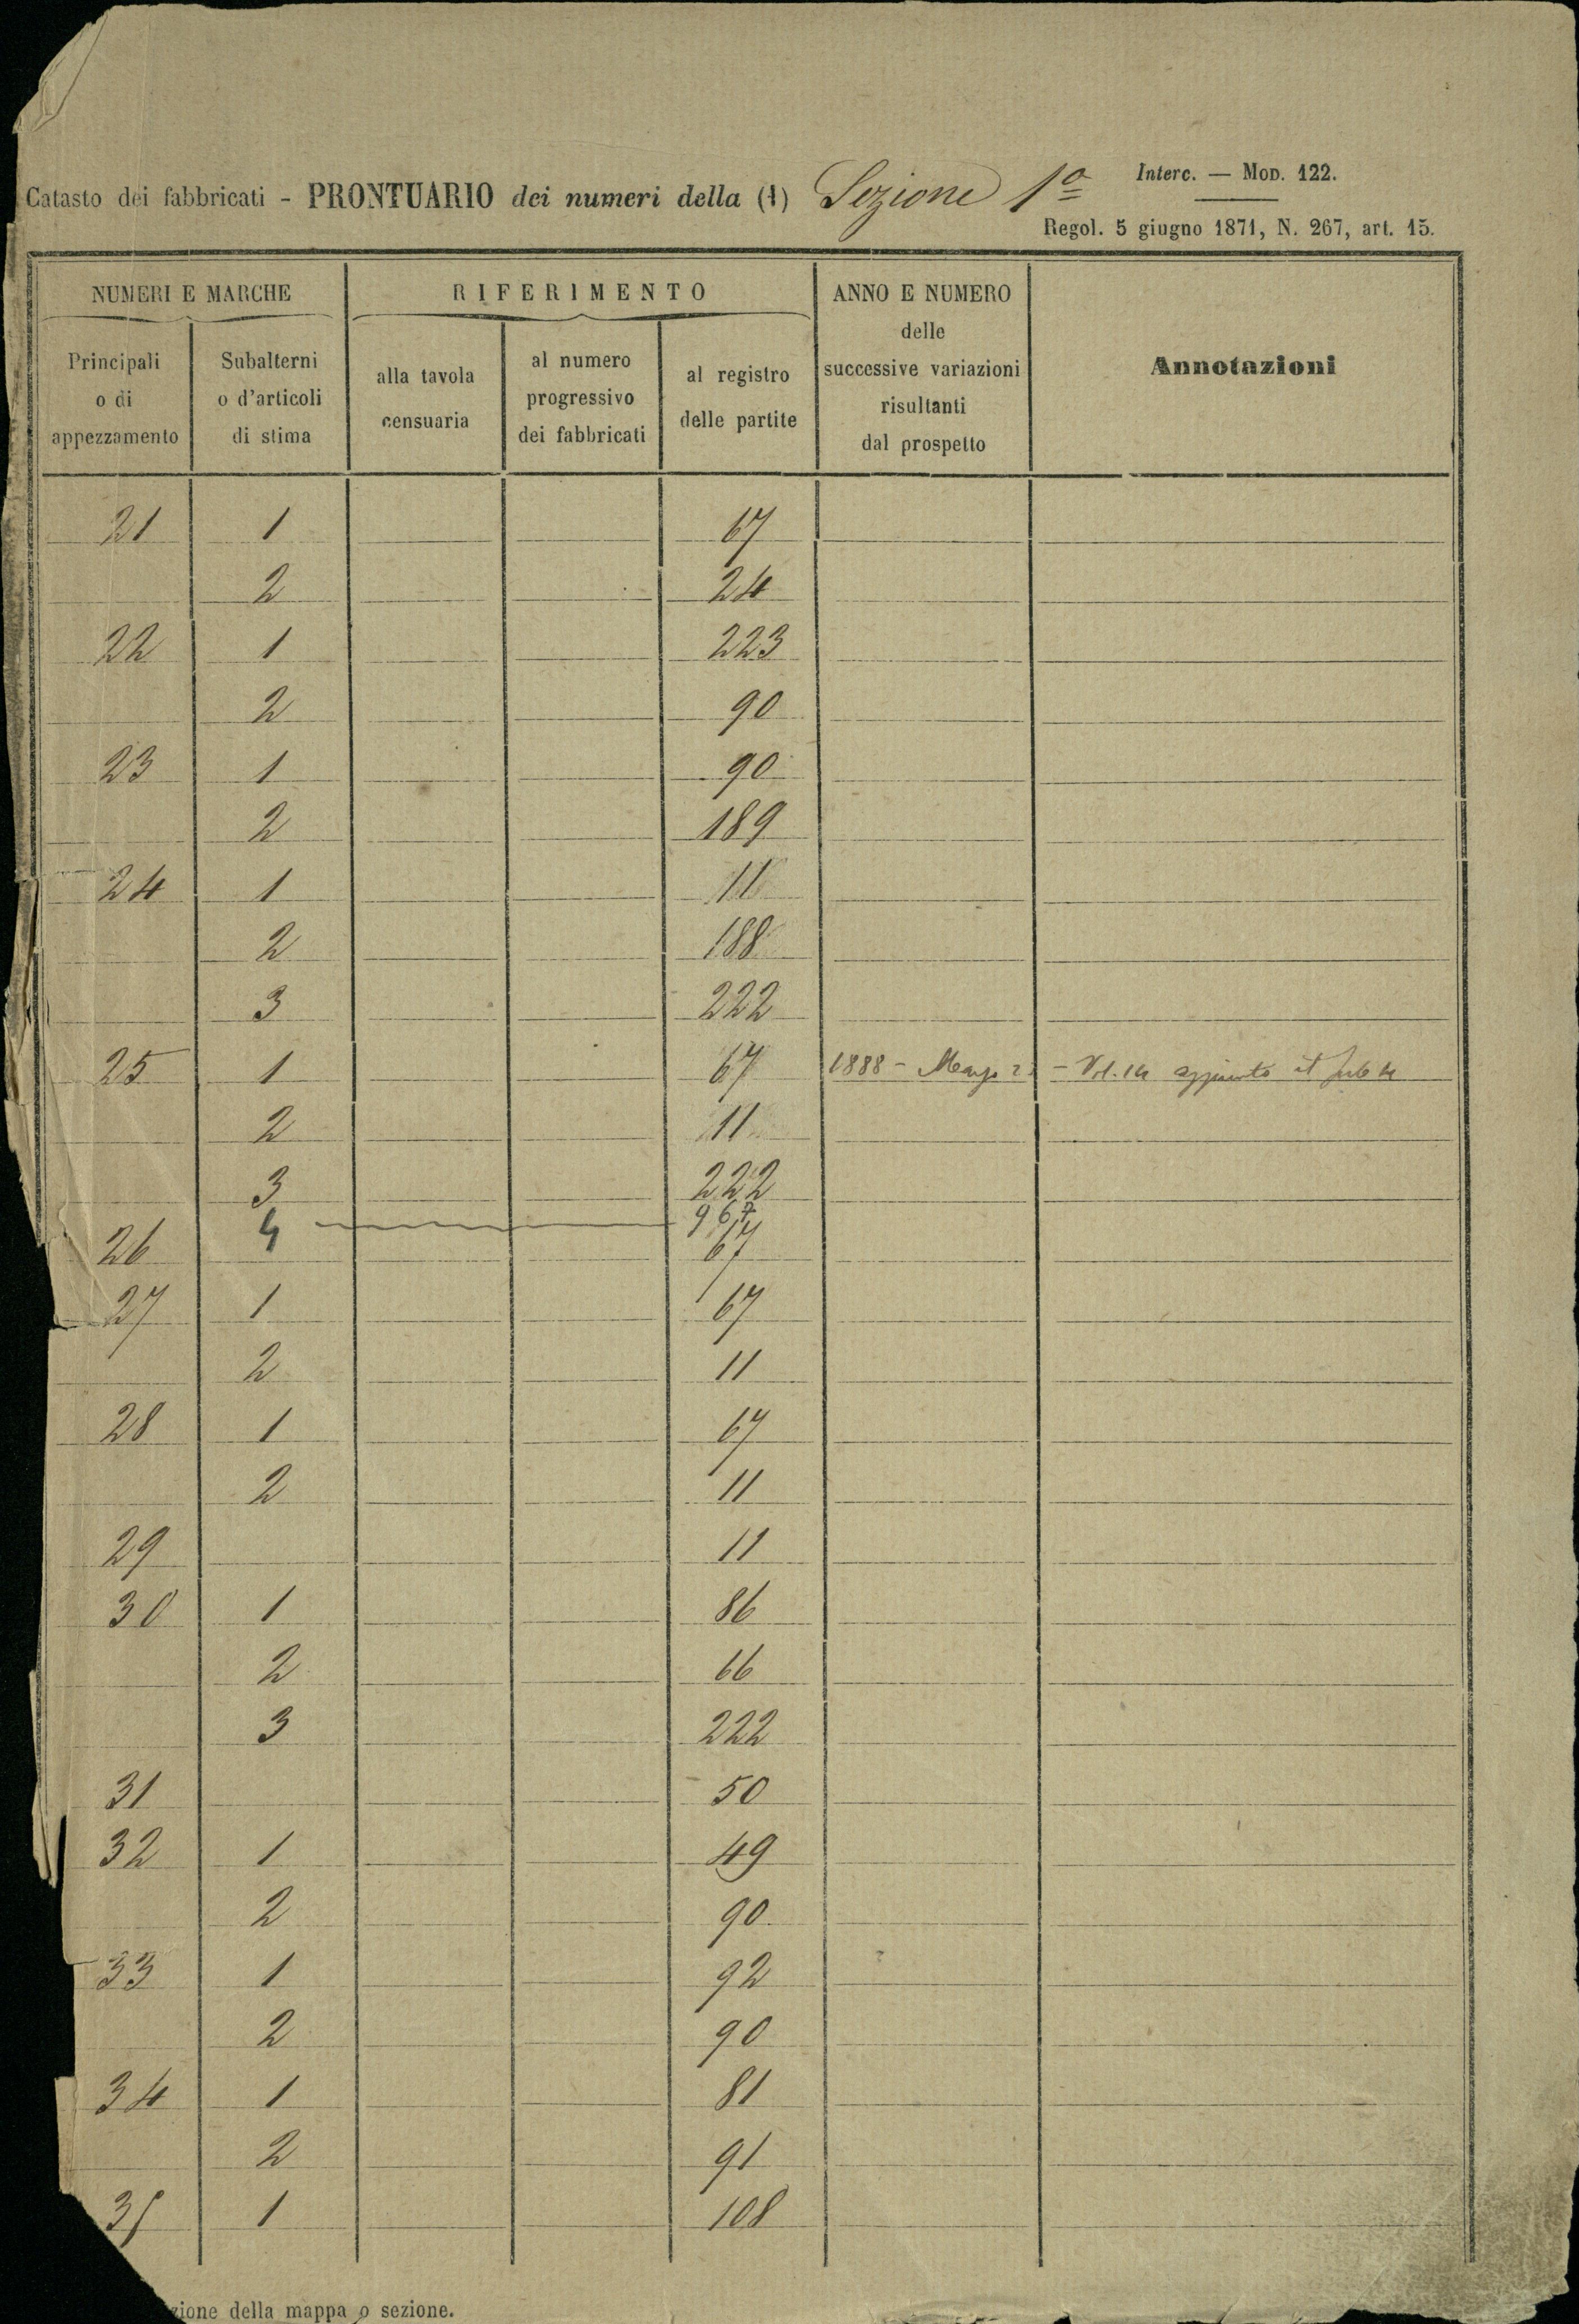 Interc. — Mod. 122.
Catasto dei fabbricati - PRONTUARIO dei numeri della (1) Sezione 1ª
Regol. 5 giugno 1871, N. 267, art. 15.
NUMERI E MARCHE
RIFERIMENTO
ANNO E NUMERO
delle
successive variazioni
risultanti
dal prospetto
Annotazioni
Principali
o di
appezzamento
Subalterni
o d'articoli
di stima
alla tavola
censuaria
al numero
progressivo
dei fabbricati
al registro
delle partite
21 1 67
2 24
22 1 223
2 90
23 1 90
2 189
24 1 11
2 188
3 222
25 1 67 1888 - - Vol. 14 aggiunto il sub 4
2 11
3 222
4 967
26 67
27 1 67
2 11
28 1 67
2 11
29 11
30 1 86
2 66
3 222
31 50
32 1 49
2 90
33 1 92
2 90
34 1 81
2 91
35 1 108
zione della mappa o sezione.